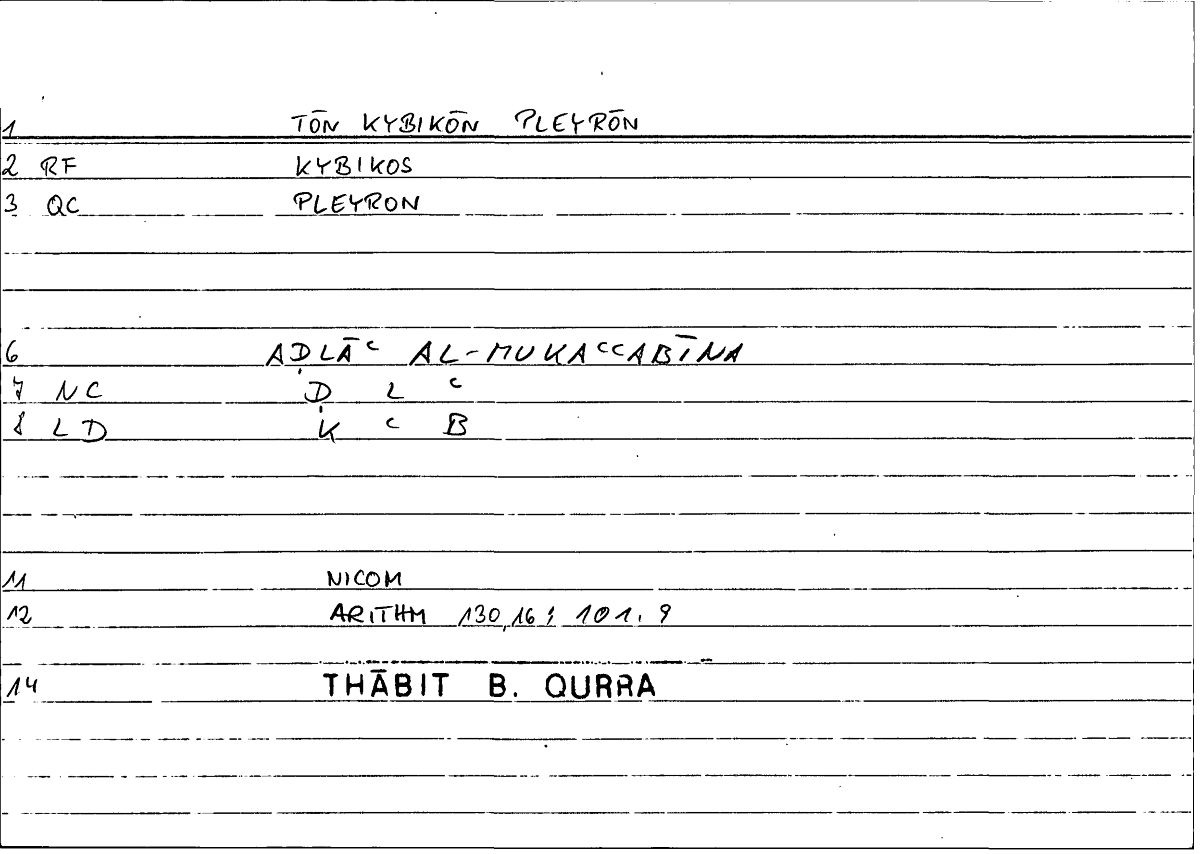 1 TŌN KYBIKŌN PLEYRŌN
2 RF KYBIKOS
3 QC PLEYRON
6 AḌLĀᶜ AL-MUKAᶜᶜABĪNA
7 NC Ḍ L ᶜ
8 LD K ᶜ B
11 NICOM
12 ARITHM 130,16; 101.9
14 THĀBIT B. QURRA